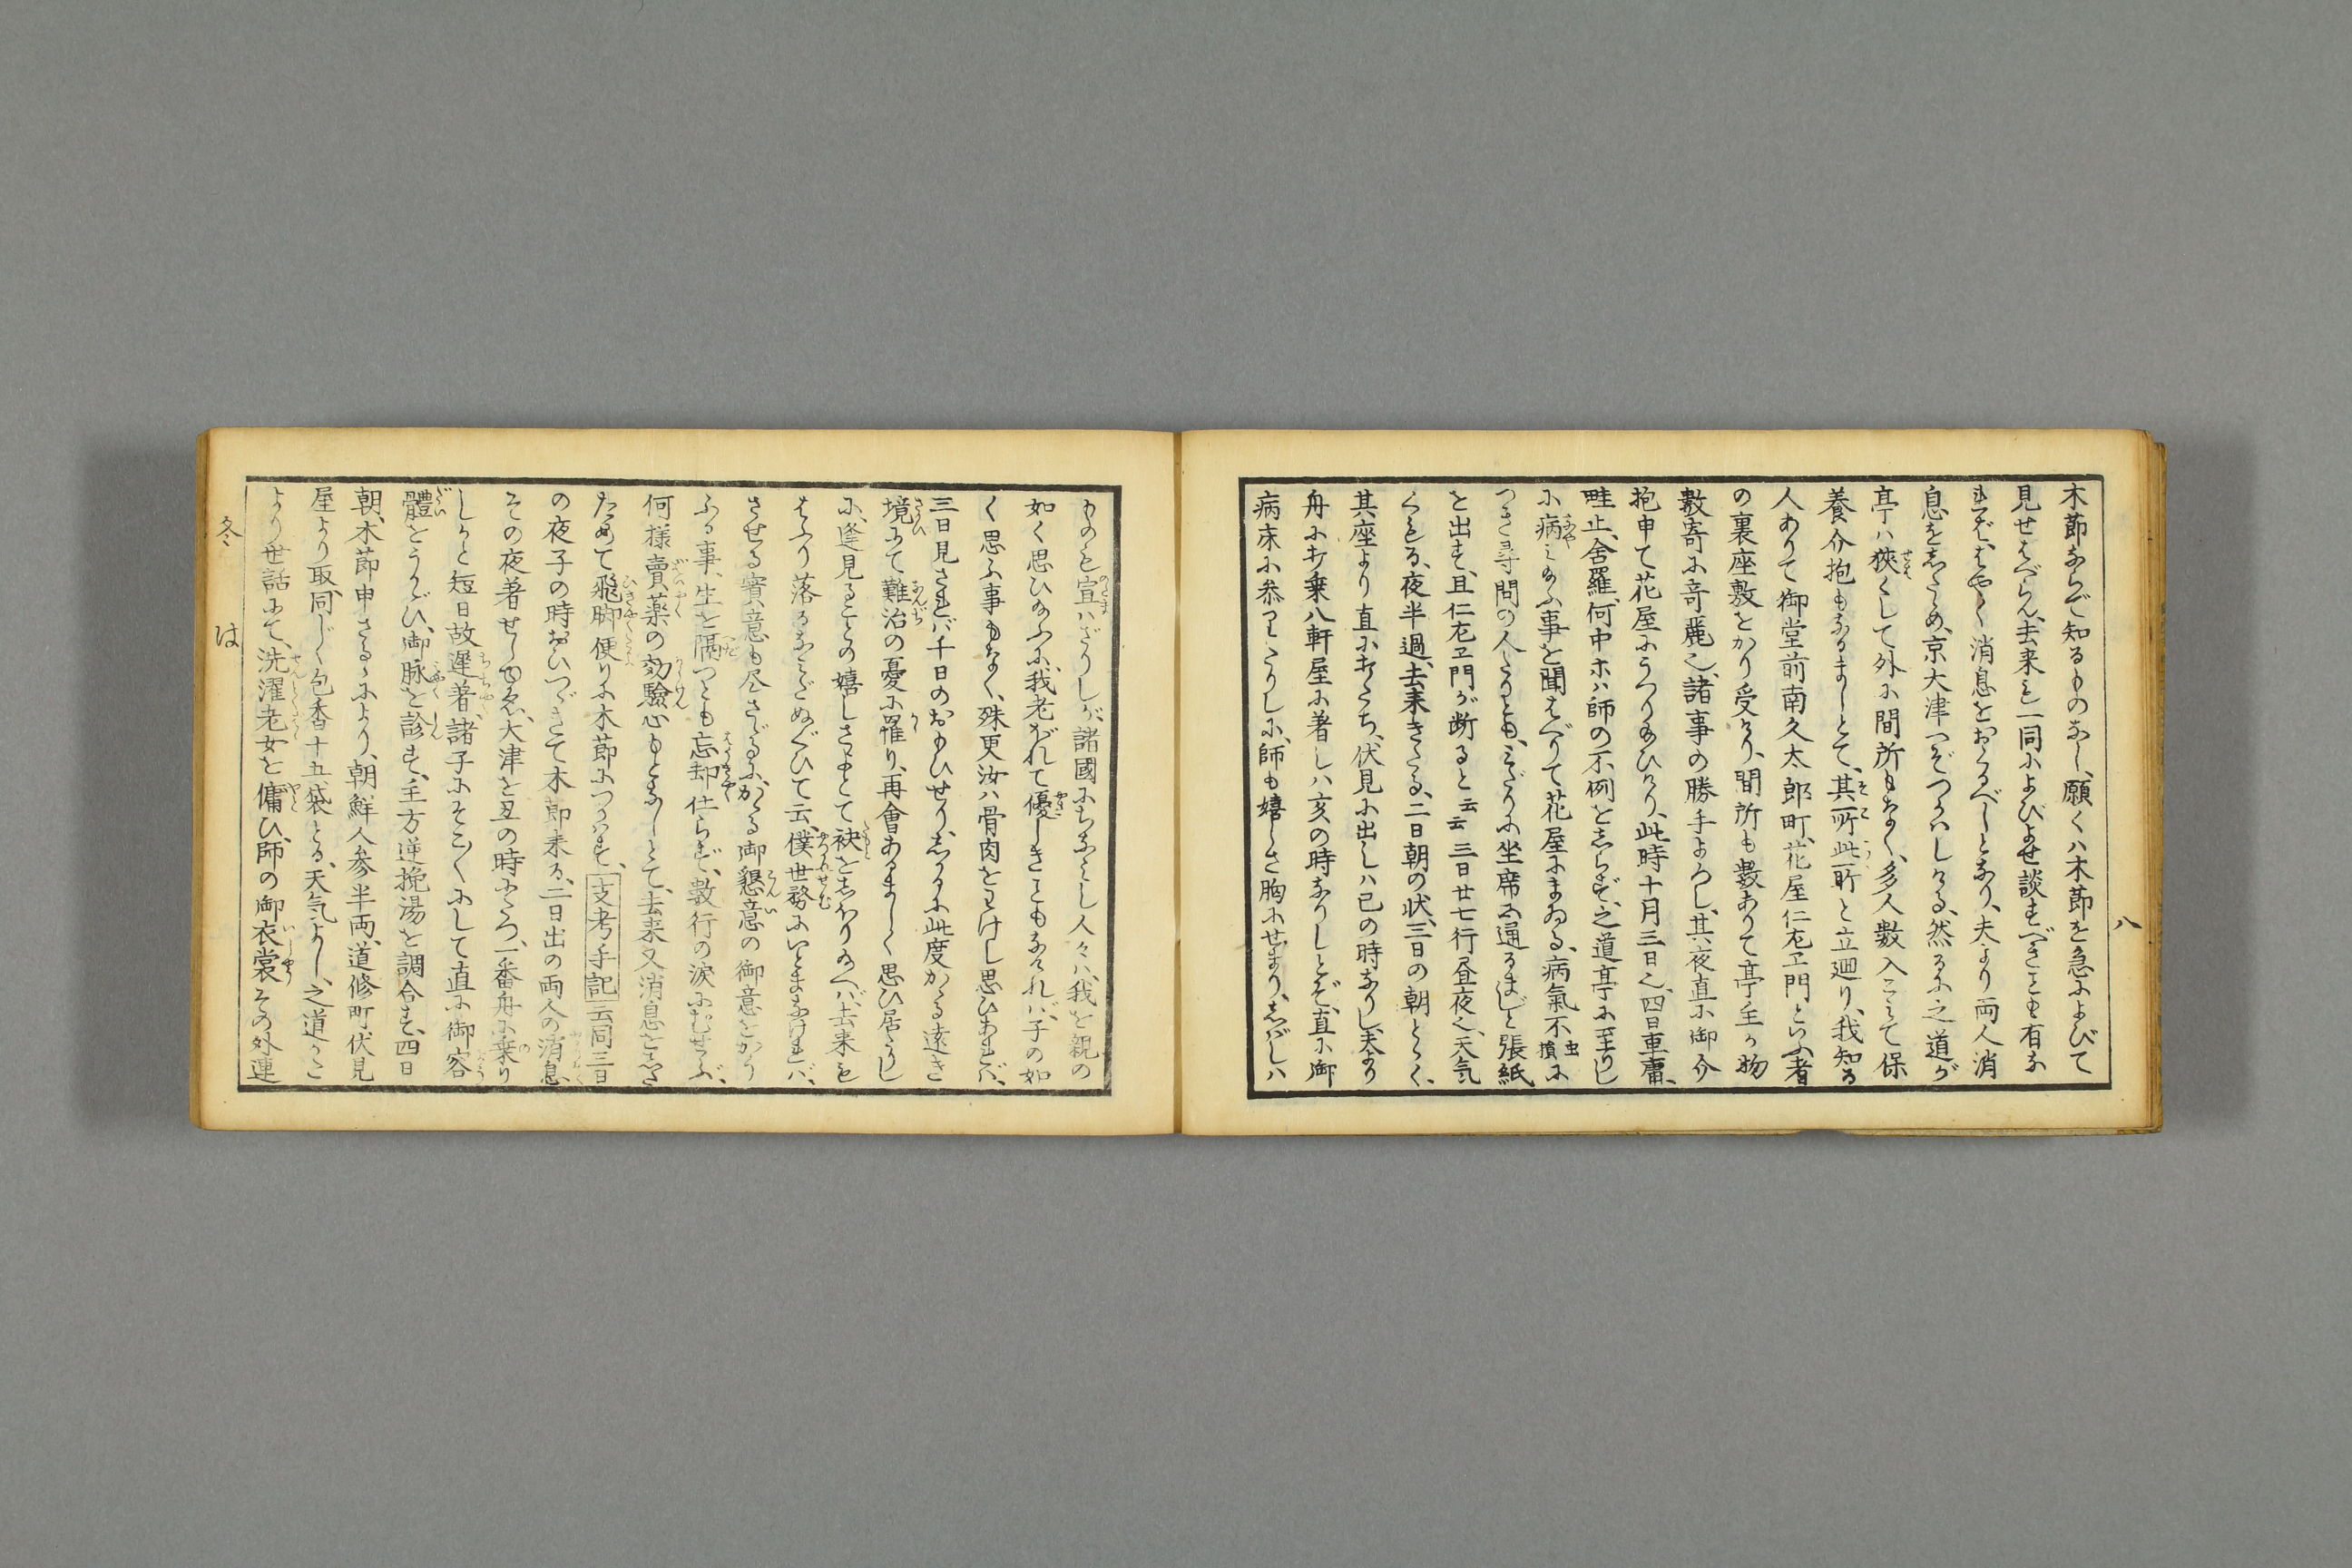 八
木節ならで知るものなし、願くハ木節を急によびて
見せたべらん、去来を一同によびよせ談ずべきことも有な
れば、はやく消息をおくるべしとなり、夫より両人消
息をしたゝめ、京大津へぞつかハしける、然るに之道が
亭ハ狭くして外に間所もなく、多人數入こみて保
養介抱もなるまじとて、其所此所と立廻り、我知る
人ありて御堂前南久太郎町、花屋仁左ヱ門といふ者
の裏座敷をかり受けり、間所も數ありて亭主が物
數寄に奇麗也、諸事の勝手よろし、其夜直に御介
抱申て花屋にうつり給ひけり、此時十月三日也、四日車庸
畦止、舎羅、何中ホハ師の不例をしらず、之道亭に至りし
に病み給ふ事を聞はべりて花屋にまゐる、病氣不虫損に
つき尋問の人たりとも、みだりに坐席に通るまじと張紙
を出す、且仁左ヱ門が断ると云云三日廿七行昼夜也、天気
くもる、夜半過、去来きたる、二日朝の状、三日の朝とゞく、
其座より直に打たち、伏見に出しハ巳の時なりし、夫より
舟に打乗八軒屋に著しハ亥の時なりしとぞ、直に御
病床に参りたりしに、師も嬉しさ胸にせまり、しばしハ
ものも宣ハざりしが、諸國にちなみし人々ハ、我を親の
如く思ひ給ふに、我老がれて優しきこともなければ、子の如
く思ふ事もなく、殊更汝ハ骨肉をわけし思ひあれば、
三日見ざれば千日のおもひせり、しかるに此度かゝる遠き
境にて難治の憂に罹り、再會あるまじく思ひ居たりし
に、逢見ることの嬉しさよとて袂をしぼり給へば、去来も
はふり落るなみだぬぐひて云、僕世務にいとまなければ、
させる實意も尽さゞるに、かゝる御懇意の御意をかう
ふる事、生を隔つとも忘却仕らず、數行の涙にむせぶ、
何様賣薬の効驗心もとなしとて、去来又消息をしたゝ
ためて飛脚便りに木節につかハす、支考手記云同三日
の夜子の時おひつゞきて木節来る、二日出の両人の消息
その夜着せしゆゑ、大津を丑の時に立、一番舟に乗り
しかと短日故遅著、諸子にそこ〱にして直に御容
體をうかゞひ、御脉を診す、主方逆挽湯を調合す、四日
朝、木節申さるゝにより、朝鮮人参半両、道修町伏見
屋より取、同じく包香十五袋とる、天気よし、之道かこ
より世話にて、洗濯老女を傭ひ、師の御衣裳その外連
冬 は